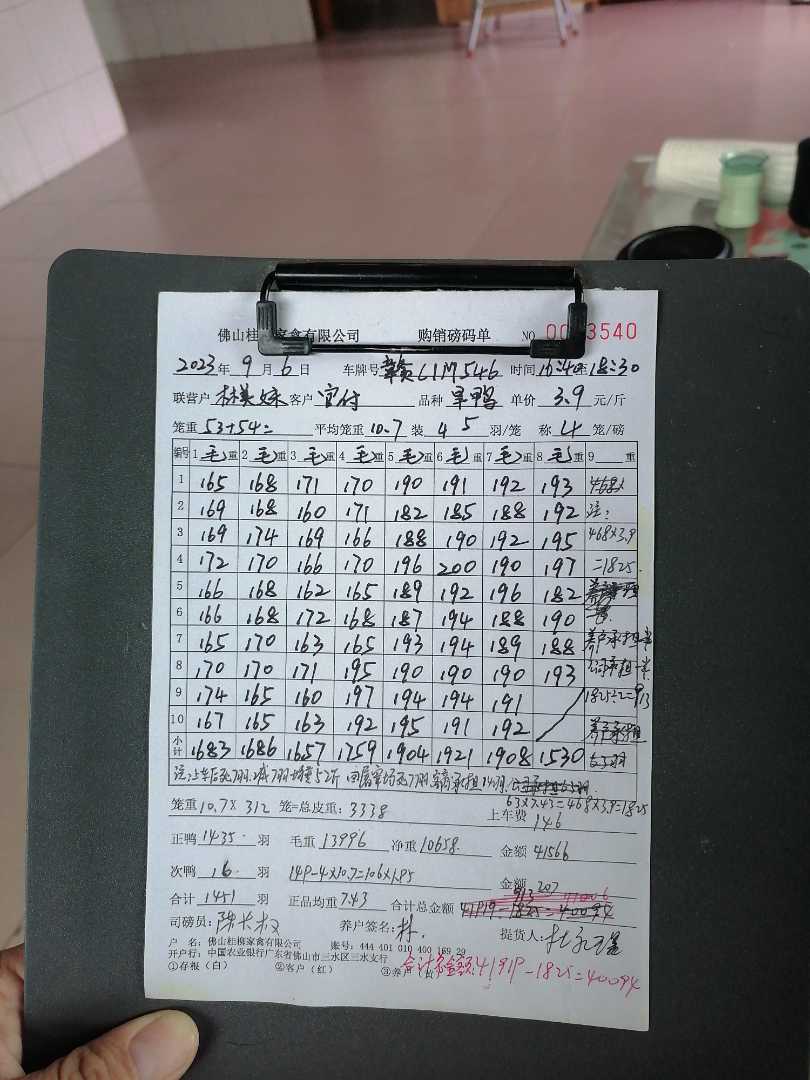 佛山桂柳家禽有限公司 购销磅码单 NO 3540
2023年9月6日 车牌号 赣C1M546 时间16:40至18:30
联营户 林美妹 客户 官付 品种 旱鸭 单价 3.9 元/斤
笼重 53+54= 平均笼重10.7 装 4 5 羽/笼 称 4 笼/磅
编号 1毛重 2毛重 3毛重 4毛重 5毛重 6毛重 7毛重 8毛重 9 重
1 165 168 171 170 190 191 192 193
2 169 168 160 171 182 185 188 192 注:
3 169 174 169 166 188 190 192 195 468×3.9
4 172 170 166 170 196 200 190 197 =1825.
5 166 168 162 165 189 192 196 182
6 166 168 172 168 187 194 188 190
7 165 170 163 165 193 194 189 188 养户承担一半
8 170 170 171 195 190 190 190 193 公司承担一半
9 174 165 160 197 194 194 191 1825÷2=913
10 167 165 163 192 195 191 192 养户承担
小计 1683 1686 1657 1759 1904 1921 1908 1530
注:上车后死7羽,减7羽
63×7.43=468×3.9=1825
笼重10.7× 312 笼=总皮重: 3338 上车费 146
正鸭 1435 羽 毛重 13996 净重 10658 金额 41566
次鸭 16 羽 149-4×10.7=106×1.95 金额 207
913
合计 1451 羽 正品均重 7.43 合计总金额 41919-1825=40094
司磅员: 养户签名: 林 提货人:
户 名: 佛山桂柳家禽有限公司 账号: 444 401 010 400 169 29
开户行: 中国农业银行广东省佛山市三水区三水支行
①存根(白) ②客户(红) ③养户(黄)
合计总金额:41919-1825=40094